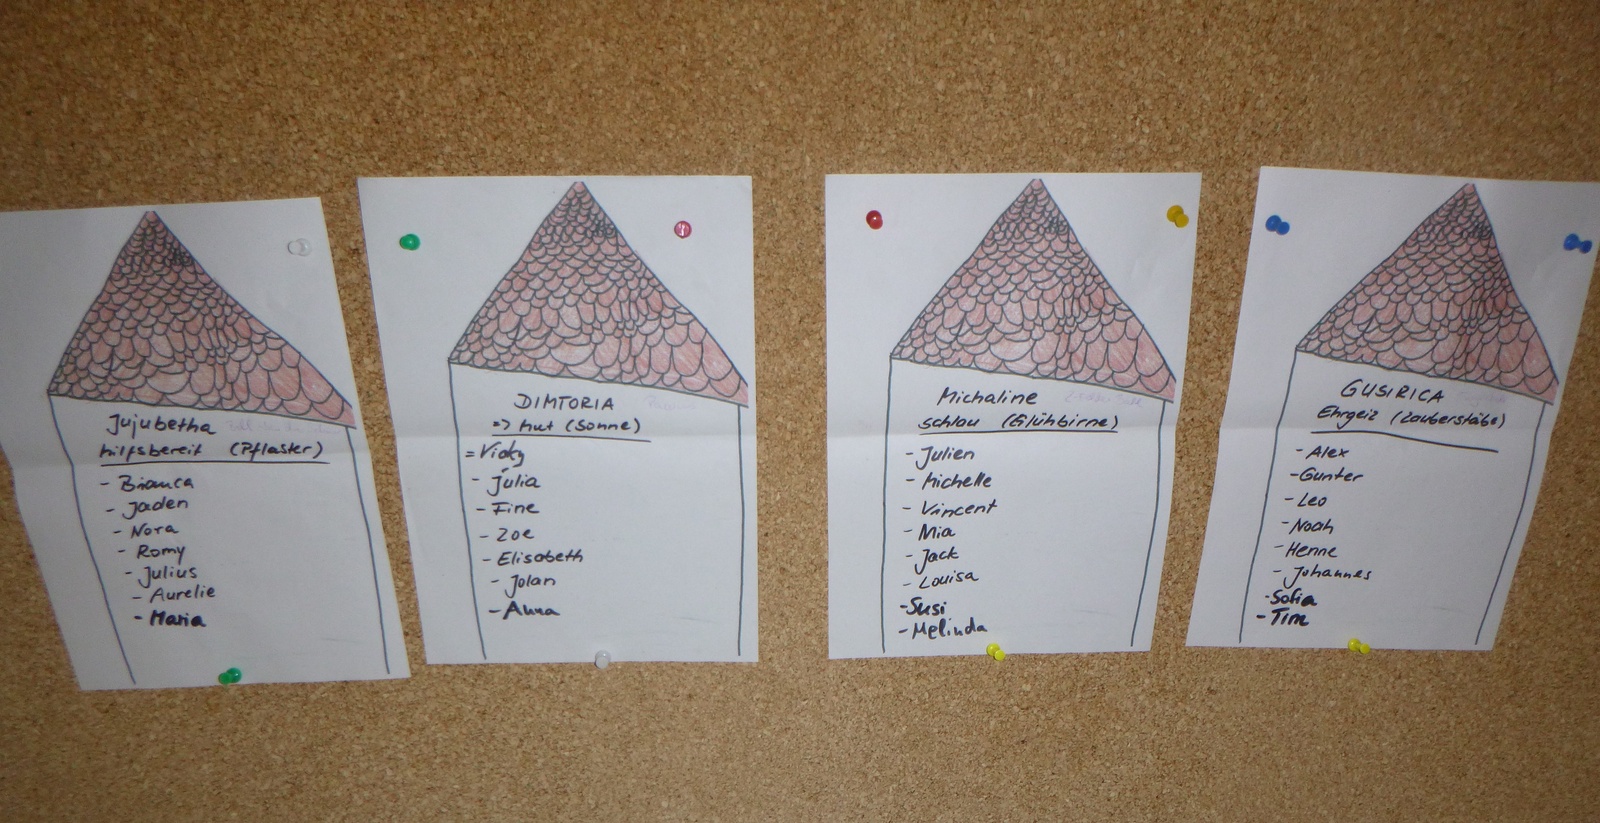 Jujubetha
hilfsbereit (Pflaster)
- Bianca
- Jaden
- Nora
- Romy
- Julius
- Aurelie
- Maria
DIMTORIA
=> Mut (Sonne)
= Vicky
- Julia
- Fine
- Zoe
- Elisabeth
- Jolan
- Anna
Michaline
schlau (Glühbirne)
- Julien
- Michelle
- Vincent
- Mia
- Jack
- Louisa
- Susi
- Melinda
GUSIRICA
Ehrgeiz (Zauberstäbe)
- Alex
- Gunter
- Leo
- Noah
- Henne
- Johannes
- Sofia
- Tim